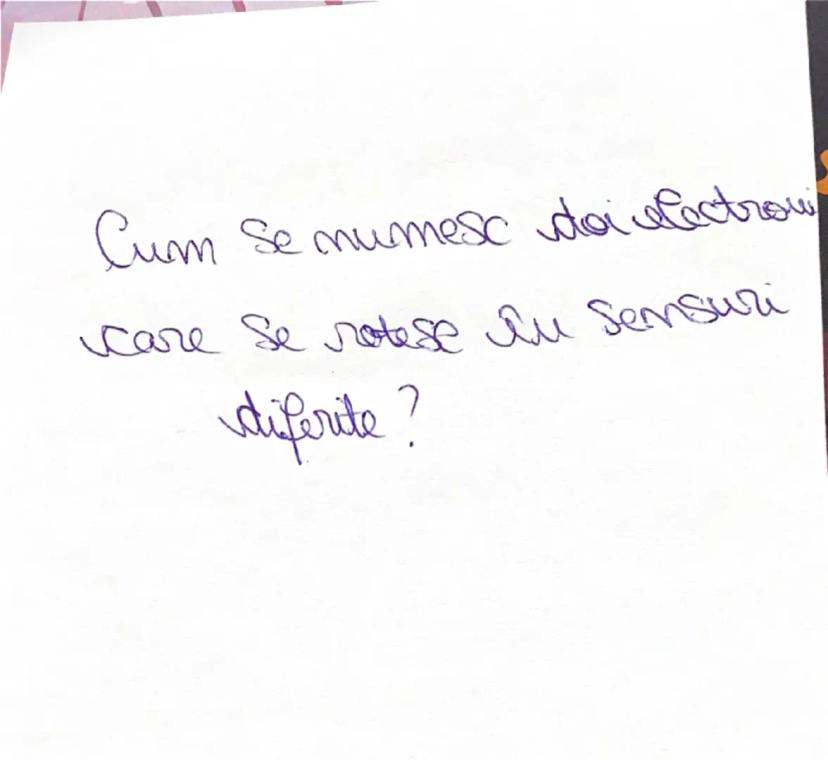 Cum se numesc doi electroni
care se rotesc în sensuri
diferite?